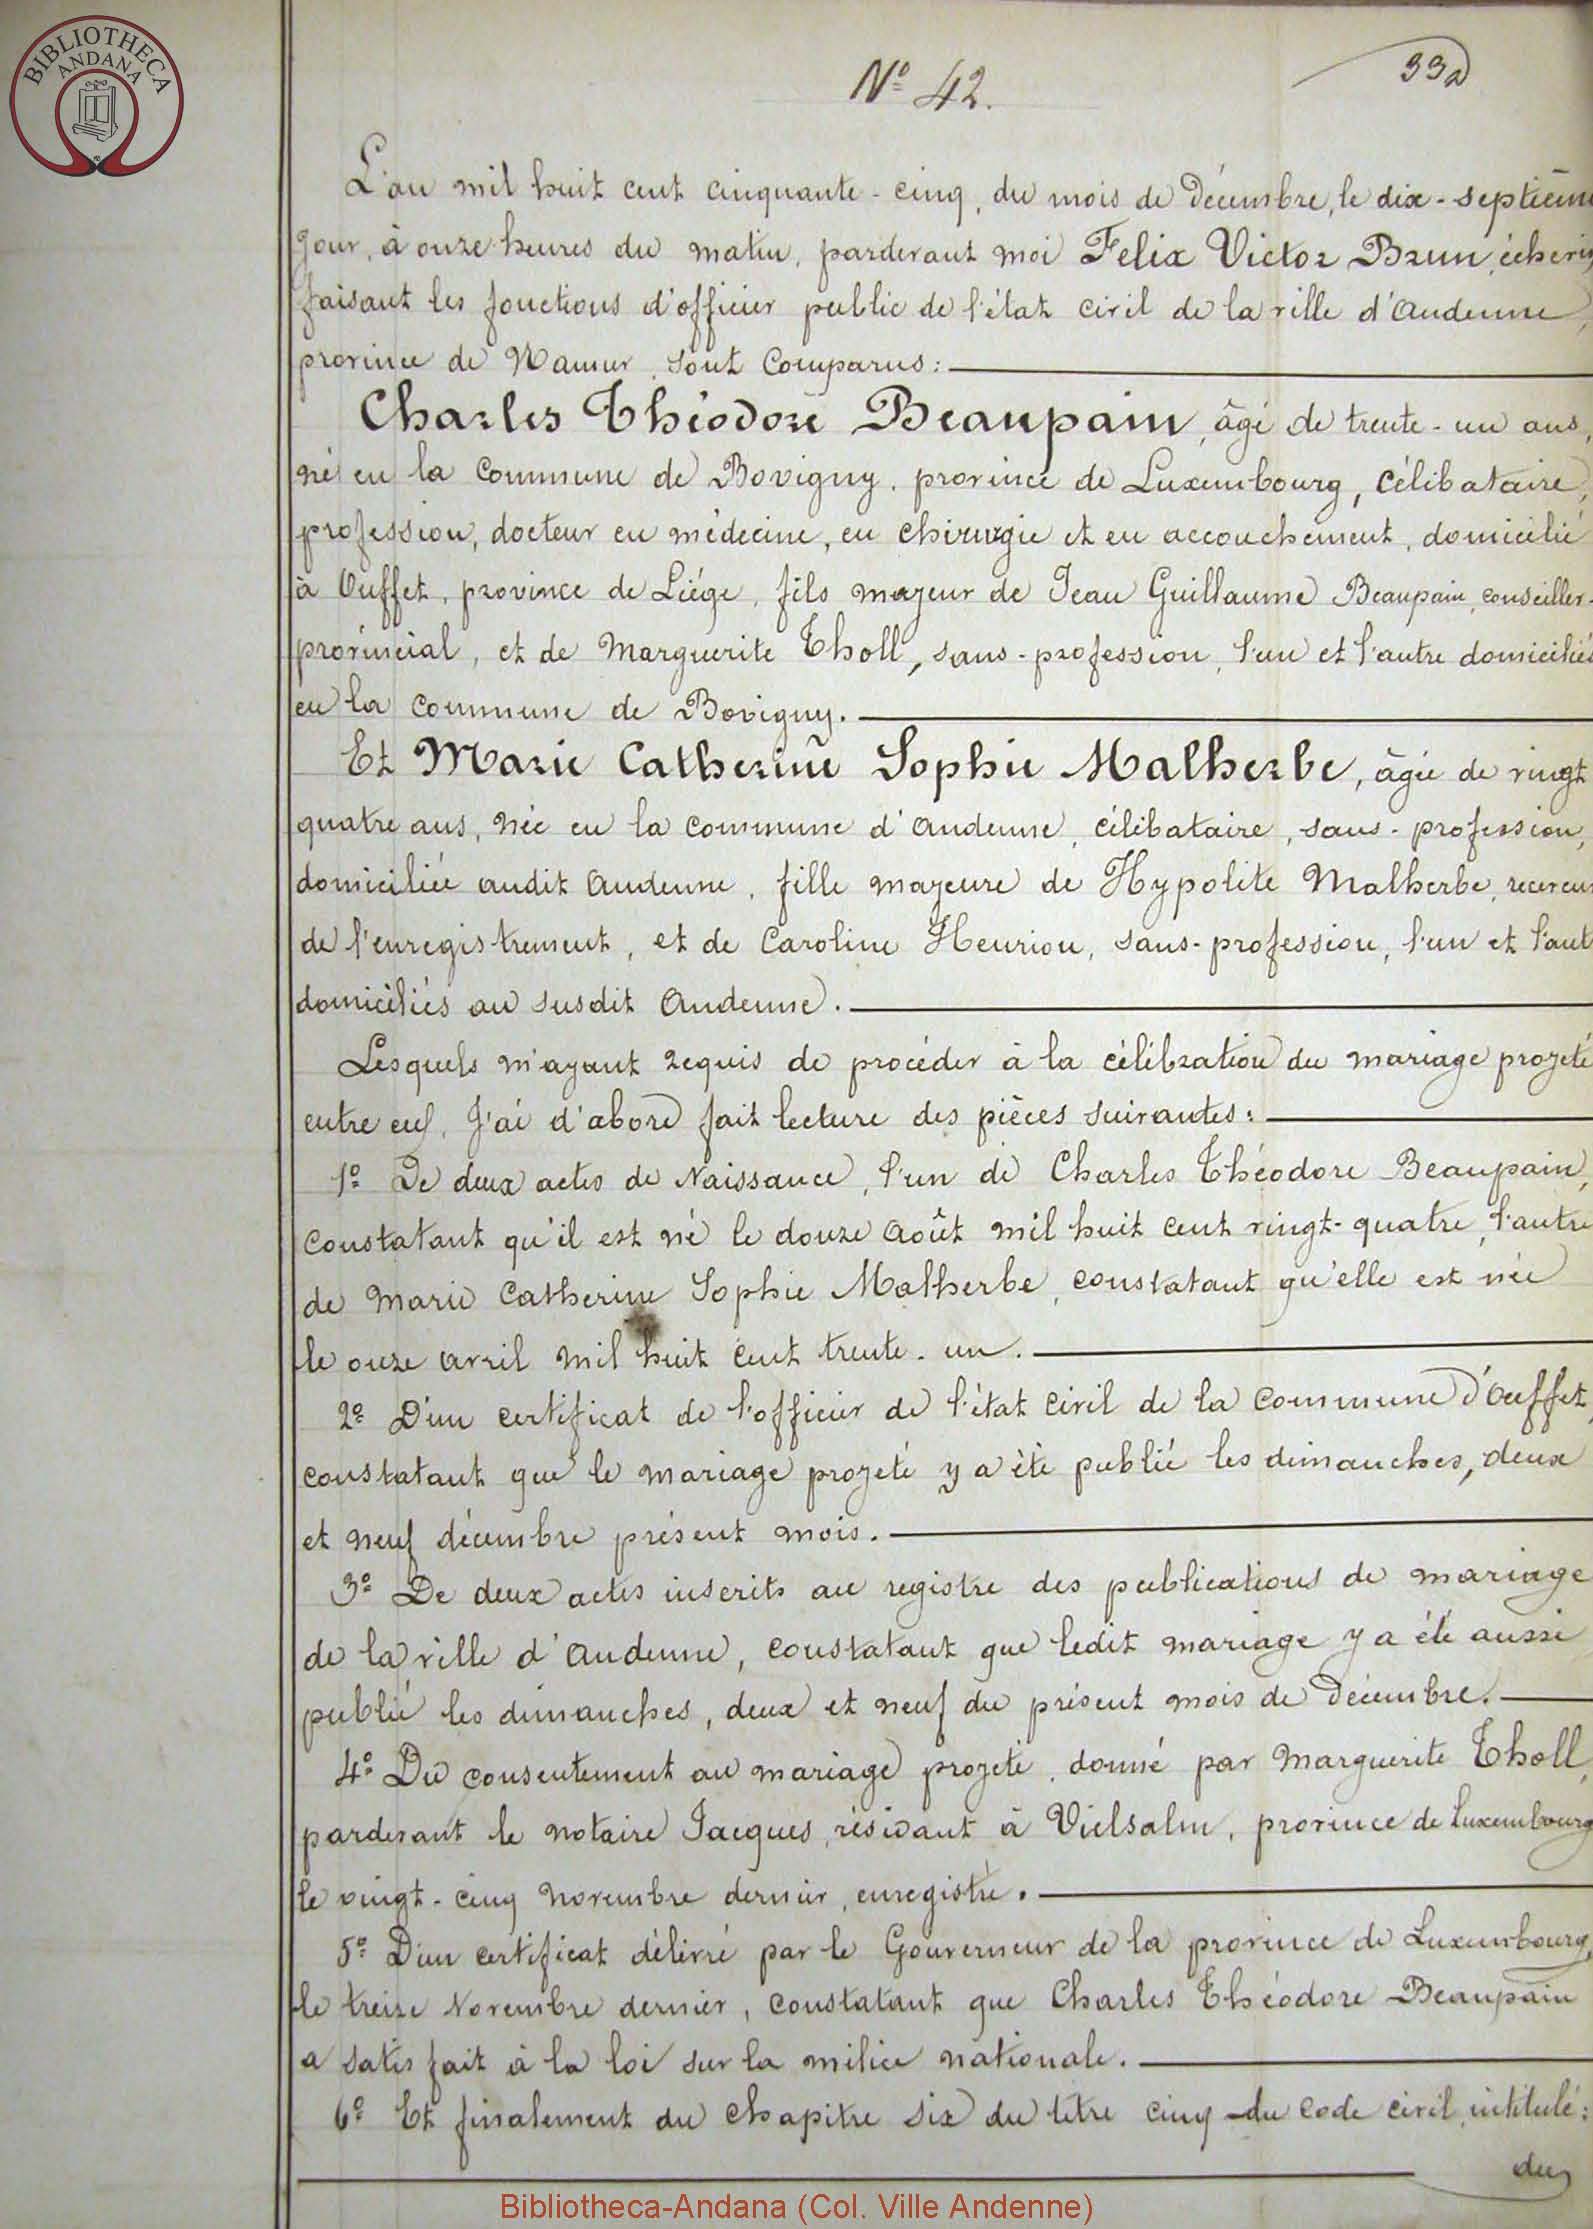 BIBLIOTHECA
ANDANA
Nº 42.
33
L'an mil huit cent cinquante-cinq, du mois de Décembre, le dix-septième
jour, à onze heures du matin, pardevant moi Felix Victor Brun, échevin,
faisant les fonctions d'officier public de l'état civil de la ville d'Andenne,
province de Namur, sont comparus :
Charles Théodore Beaupain, âgé de trente-un ans,
né en la commune de Bovigny, province de Luxembourg, célibataire,
profession, docteur en médecine, en chirurgie et en accouchement, domicilié
à Ouffet, province de Liége, fils majeur de Jean Guillaume Beaupain, conseiller-
provincial, et de Marguerite Tholl, sans-profession, l'un et l'autre domiciliés
en la commune de Bovigny.
Et Marie Catherine Sophie Malherbe, âgée de vingt
quatre ans, née en la commune d'Andenne, célibataire, sans-profession,
domiciliée audit Andenne, fille majeure de Hypolite Malherbe, receveur
de l'enregistrement, et de Caroline Henrion, sans-profession, l'un et l'aut
domiciliés au susdit Andenne.
Lesquels m'ayant requis de procéder à la célébration du mariage projeté
entre eux, J'ai d'abord fait lecture des pièces suivantes :
1º De deux actes de Naissance, l'un de Charles Théodore Beaupain,
constatant qu'il est né le douze Août mil huit cent vingt-quatre, l'autre
de Marie Catherine Sophie Malherbe, constatant qu'elle est née
le onze avril mil huit cent trente-un.
2º D'un certificat de l'officier de l'état civil de la commune d'Ouffet,
constatant que le mariage projeté y a été publié les dimanches, deux
et neuf décembre présent mois.
3º De deux actes inscrits au registre des publications de mariage
de la ville d'Andenne, constatant que ledit mariage y a été aussi
publié les dimanches, deux et neuf du présent mois de Décembre.
4º Du consentement au mariage projeté, donné par Marguerite Tholl,
pardevant le notaire Jacques, résidant à Vielsalm, province de Luxembourg
le vingt-cinq novembre dernier, enregistré.
5º D'un certificat délivré par le Gouverneur de la province de Luxembourg,
le treize Novembre dernier, constatant que Charles Théodore Beaupain
a satisfait à la loi sur la milice nationale.
6º Et finalement du chapitre six du titre cinq du code civil, intitulé :
du
Bibliotheca-Andana (Col. Ville Andenne)